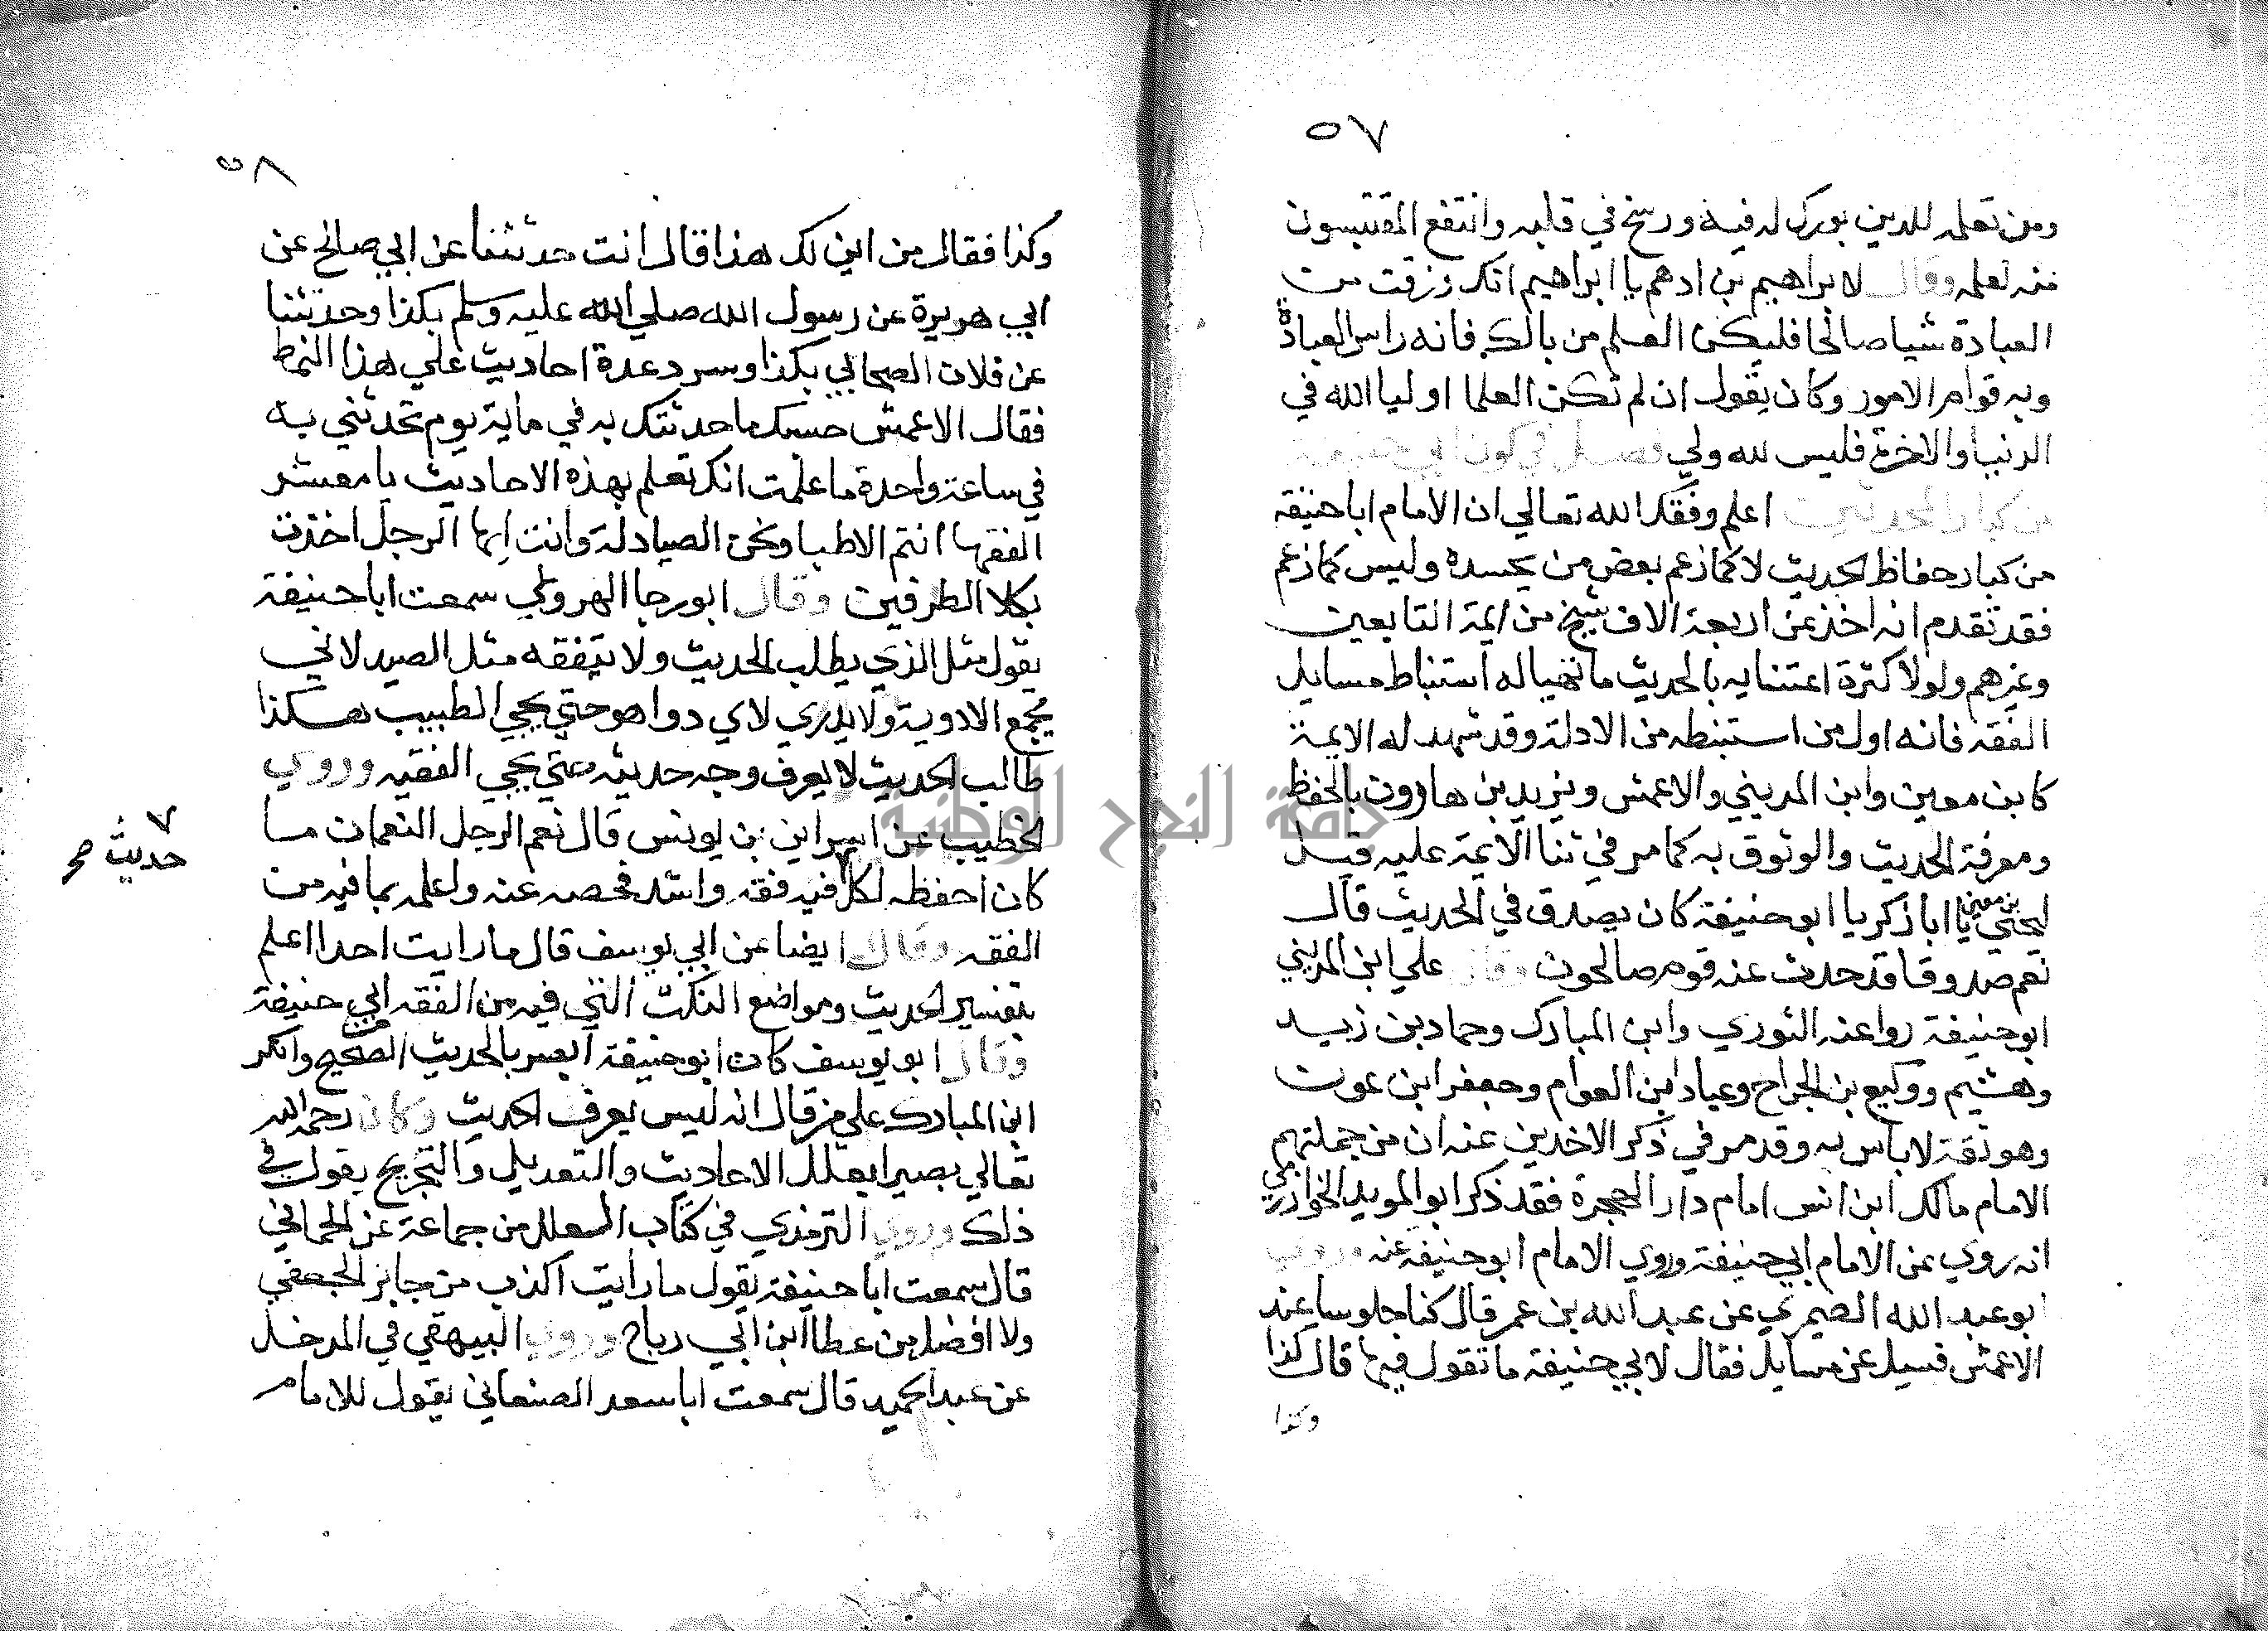 ٥٧
ومن تعلمه للدين بورك له فيه ورسخ في قلبه وانتفع المقتبسون
منه لعلمه وقال لابراهيم بن ادهم يا ابراهيم انك رزقت من
العبادة شيا صالحا فليكن العلم من بالك فانه راس العبادة
وبه قوام الامور وكان يقول ان لم تكن العلما اوليا الله في
الدنيا والاخرة فليس لله ولي فصل في كون ابي حنيفة
من كبار المحدثين اعلم وفقك الله تعالي ان الامام ابا حنيفة
من كبار حفاظ الحديث لا كما زعم بعض من يحسده وليس كما زعم
فقد تقدم انه اخذ عن اربعة الاف شيخ من ايمة التابعين
وغيرهم ولولا كثرة اعتنايه بالحديث ما تهيا له استنباط مسايل
الفقه فانه اول من استنبطه من الادلة وقد شهد له الايمة
كابن معين وابن المديني والاعمش ويزيد بن هارون بالحفظ
ومعرفة الحديث والوثوق به كما مر في ثنا الايمة عليه قيل
ليحيي بن معين يا ابا زكريا ابو حنيفة كان يصدق في الحديث قال
نعم صدوقا قد حدث عنه قوم صالحون وقال علي ابن المديني
ابو حنيفة روا عنه الثوري وابن المبارك وحماد بن زيد
وهشيم ووكيع بن الجراح وعباد ابن العوام وجعفر ابن عون
وهو ثقة لا باس به وقد مر في ذكر الاخذين عنه ان من جملتهم
الامام مالك ابن انس امام دار الهجرة فقد ذكر ابو المويد الخوارزمي
انه روي عن الامام ابي حنيفة وروي الامام ابو حنيفة عنه وروي
ابو عبد الله الصيمري عن عبد الله بن عمر قال كنا جلوسا عند
الاعمش فسيل عن مسايل فقال لابي حنيفة ما تقول فيها قال كذا
وكذا
٥٨
وكذا فقال من اين لك هذا قال انت حدثتنا عن ابي صالح عن
ابي هريرة عن رسول الله صلي الله عليه وسلم بكذا وحدثتنا
عن فلان الصحابي بكذا وسرد عدة احاديث علي هذا النمط
فقال الاعمش حسبك ما حدثتك به في ماية يوم تحدثني به
في ساعة واحدة ما علمت انك تعلم بهذه الاحاديث يا معشر
الفقها انتم الاطبا ونحن الصيادلة وانت ايها الرجل اخذت
بكلا الطرفين وقال ابو رجا الهروي سمعت ابا حنيفة
يقول مثل الذي يطلب الحديث ولا يتفقه مثل الصيدلاني
يجمع الادوية ولا يدري لاي دوا هو حتي يجي الطبيب هكذا
طالب الحديث لا يعرف وجه حديثه حتي يجي الفقيه وروي
الخطيب عن اسراين بن يونس قال نعم الرجل النعمان ما
كان احفظه لكل فيه فقه واشد فحصه عنه واعلمه بما فيه من
حديث صح
الفقه وقال ايضا عن ابي يوسف قال ما رايت احدا اعلم
بتفسير الحديث ومواضع النكت التي فيه من الفقه ابي حنيفة
وقال ابو يوسف كان ابو حنيفة ابصر بالحديث الصحيح مني وانكر
ابن المبارك علي من قال انه ليس يعرف الحديث وكان رحمه الله
تعالي بصيرا بعلل الاحاديث والتعديل والتجريح يقول في
ذلك وروي الترمذي في كتاب العلل من جماعة عن الحماني
قال سمعت ابا حنيفة يقول ما رايت اكذب من جابر الجعفي
ولا افضل من عطا ابن ابي رباح وروي البيهقي في المدخل
عن عبد الحميد قال سمعت ابا سعد الصنعاني يقول للامام
جامعة النجاح الوطنية